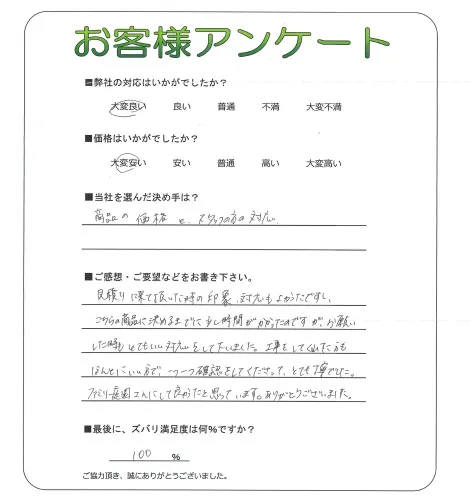 お客様アンケート
■弊社の対応はいかがでしたか？
大変良い 良い 普通 不満 大変不満
■価格はいかがでしたか？
大変安い 安い 普通 高い 大変高い
■当社を選んだ決め手は？
商品の価格と、スタッフの方の対応
■ご感想・ご要望などをお書き下さい。
見積りに来て頂いた時の印象、対応もよかったですし、
こちらの商品に決めるまでに少し時間がかかったのですが、お願い
した時もとてもいい対応をして下さいました。工事をしてくれた方も
ほんとにいい方で、一つ一つ確認をしてくださって、とても丁寧でした。
ファミリー庭園さんにして良かったと思っています。ありがとうございました。
■最後に、ズバリ満足度は何％ですか？
100 ％
ご協力頂き、誠にありがとうございました。